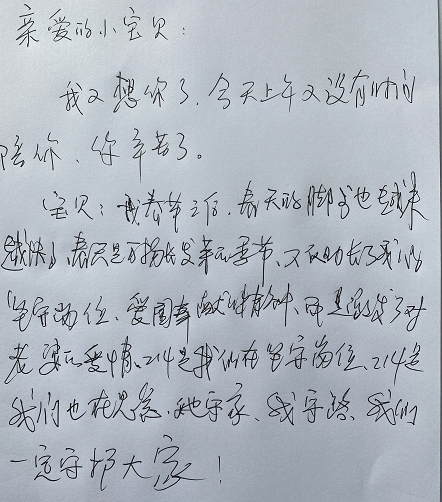 亲爱的小宝贝：
我又想你了，今天上午又没有时间
陪你、你辛苦了。
宝贝：我春节之后，春天的脚步也越来
越快了，春天是万物生发的季节、不仅助长了我们的
坚守岗位、爱国奉献的精神、而是激发了对
老婆的爱情、214是我们在坚守岗位、214是
我们也在思念，她守家、我守路、我们
一定守护大家！